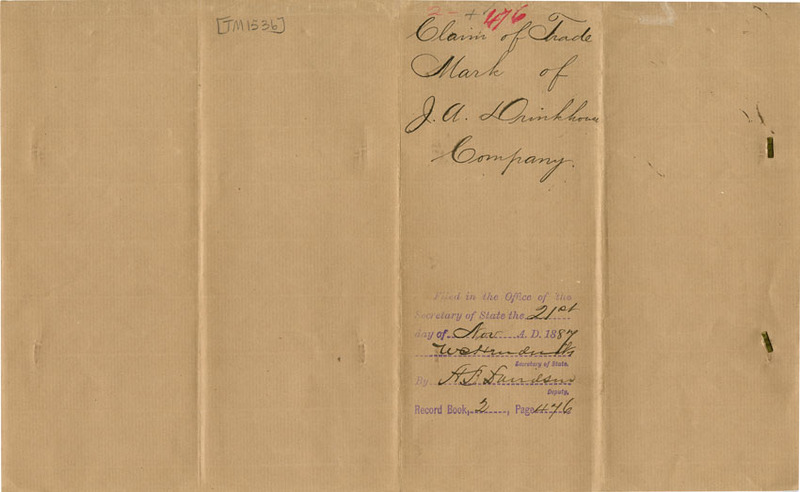 [TM1536]
476
Claim of Trade
Mark of
J. A. Drinkhouse
Company.
Filed in the Office of the
Secretary of State the 21st
day of Nov A. D. 1887
Secretary of State.
By
Deputy.
Record Book, 2, Page 476